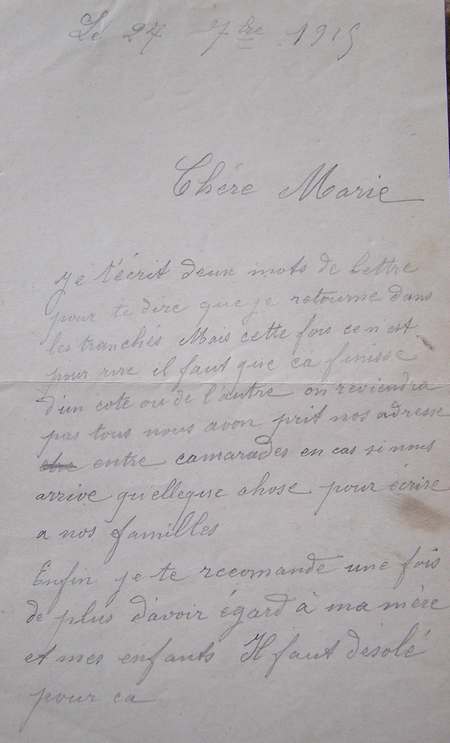 Le 24 7bre 1915
Chére Marie
Je t'écrit deux mots de lettre
pour te dire que je retourne dans
les tranchés Mais cette fois ce n est
pour rire il faut que ca finisse
d'un cote ou de l'autre on reviendra
pas tous nous avon prit nos adresse
entre camarades en cas si nous
arrive quelleque chose pour écrire
a nos familles
Enfin je te recomande une fois
de plus d'avoir égard à ma mère
et mes enfants Il faut désolé
pour ca